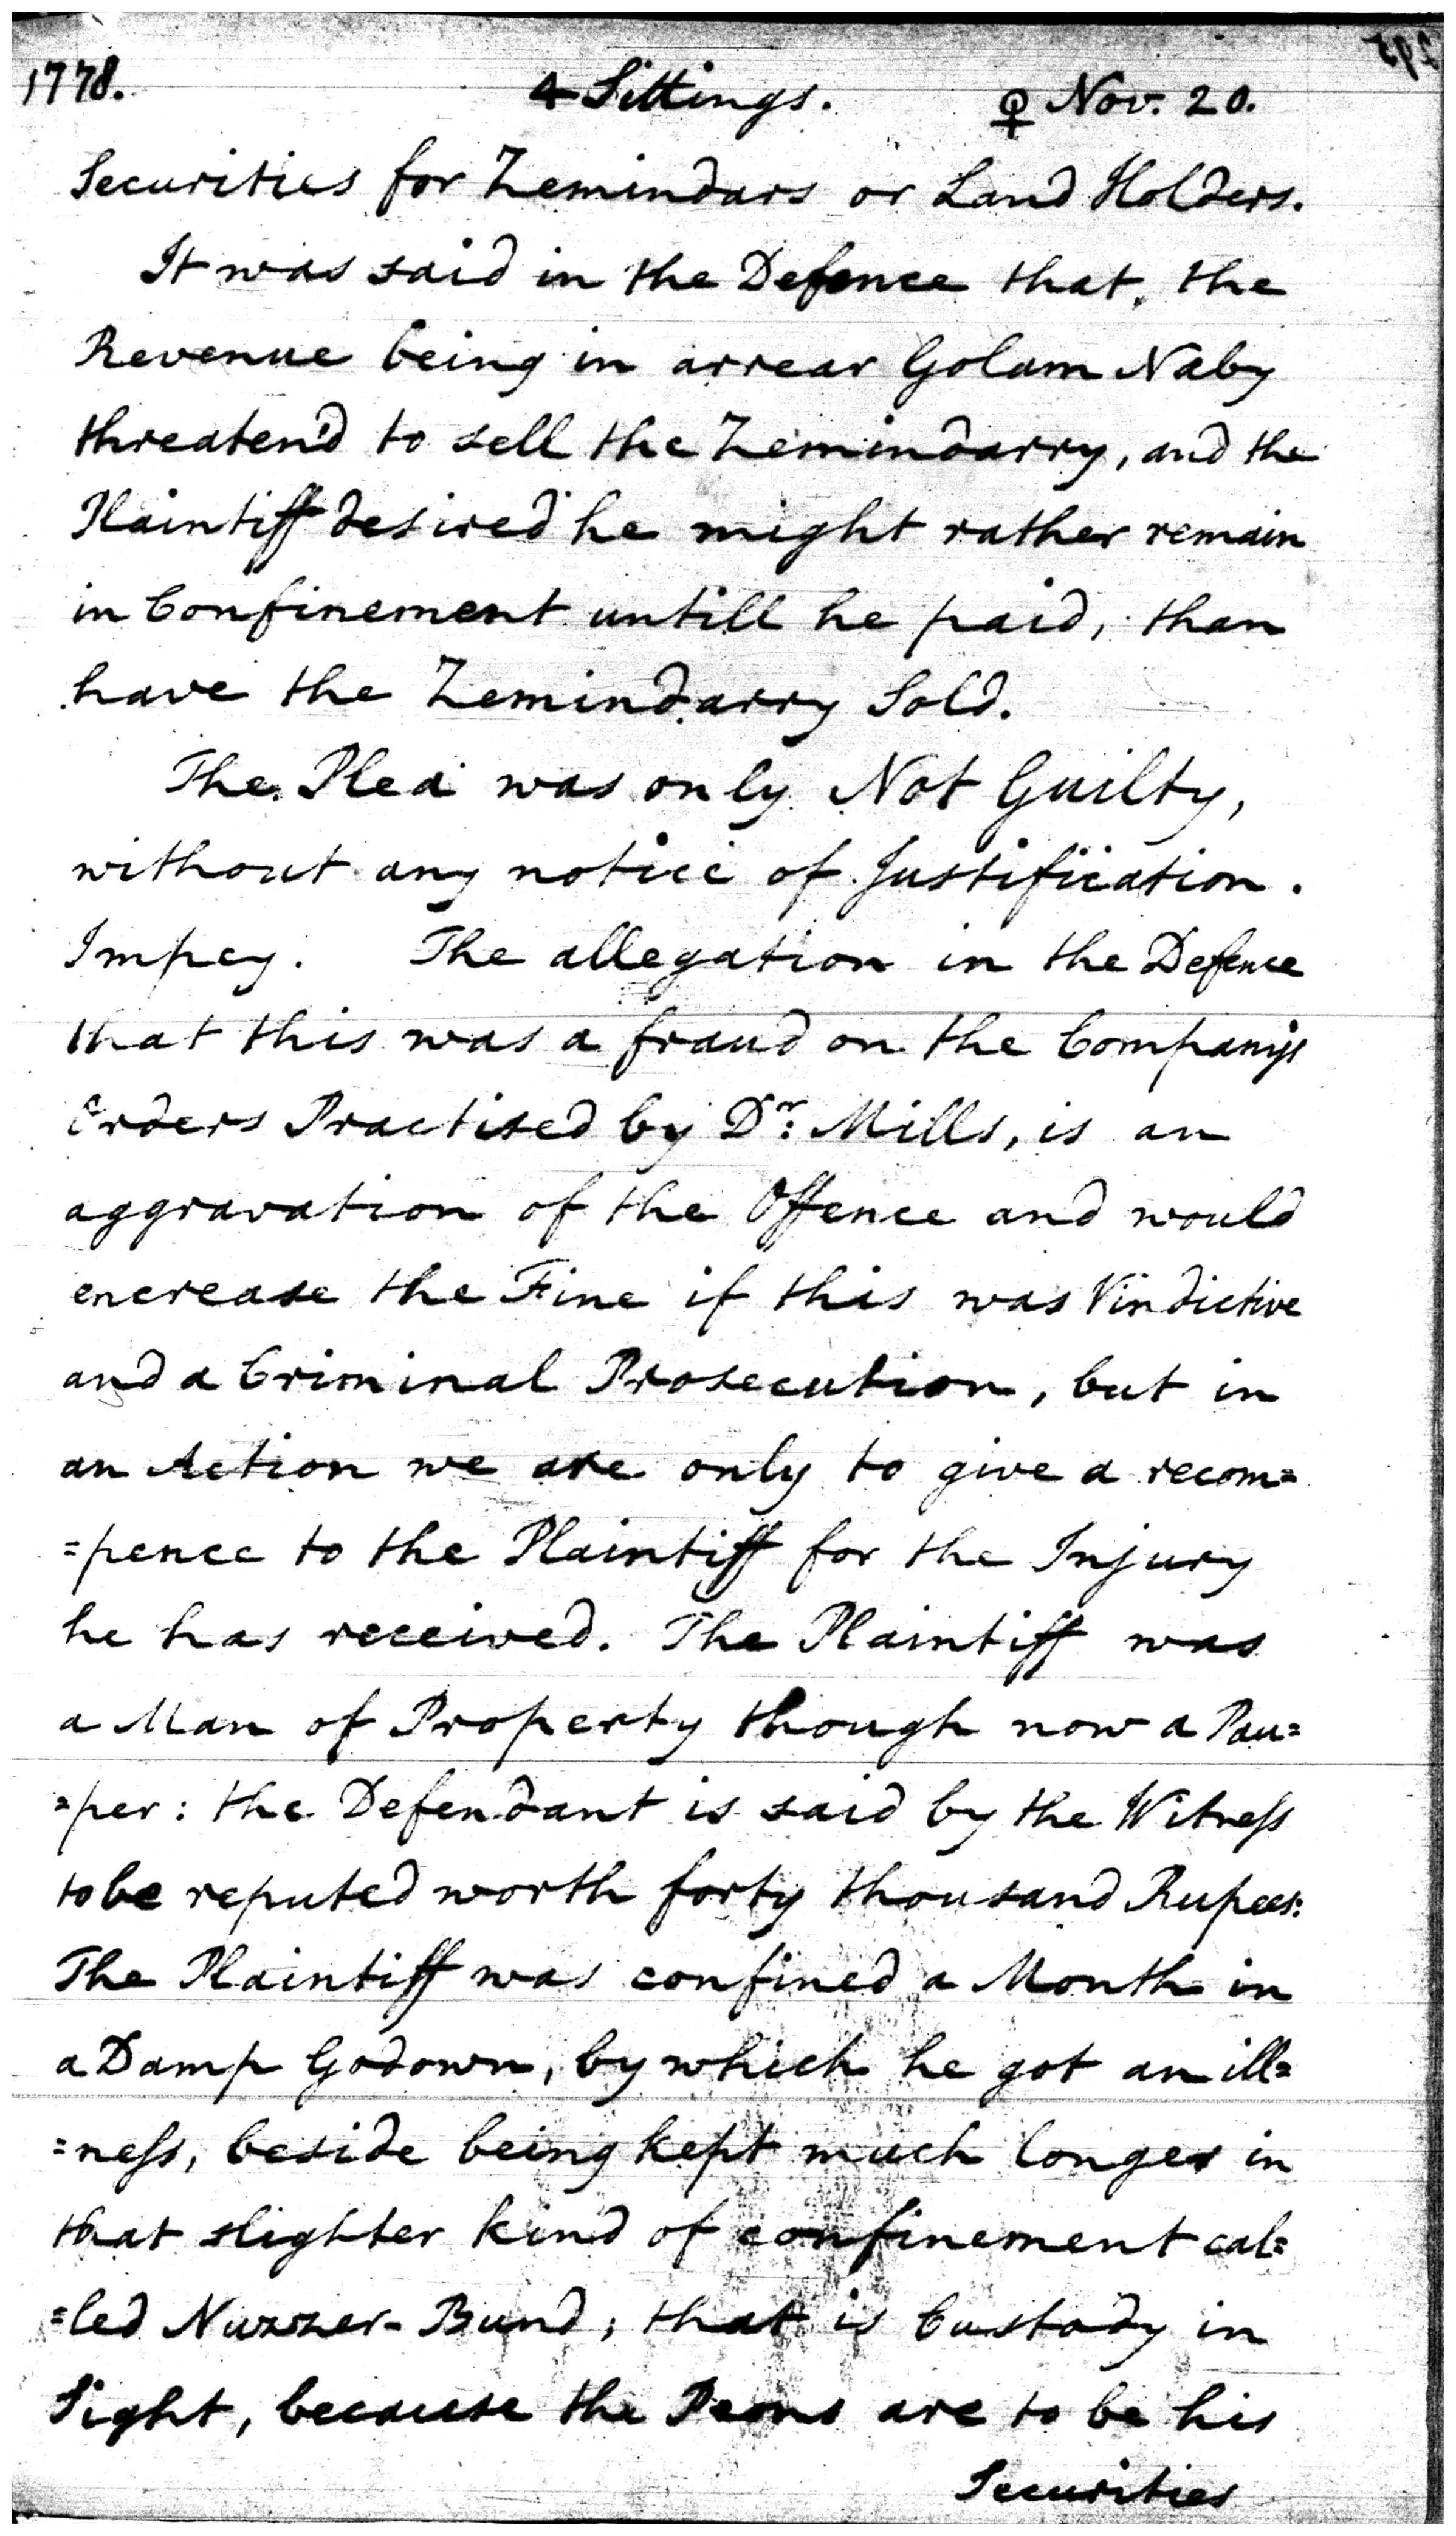 1778. 4 Sittings. ♀ Nov. 20.
Securities for Zemindars or Land Holders.
It was said in the Defence that, the
Revenue being in arrear Golam Naby
threaten'd to sell the Zemindarry, and the
Plaintiff desired he might rather remain
in Confinement untill he paid, than
have the Zemindarry Sold.
The Plea was only Not Guilty,
without any notice of Justification.
Impey. The allegation in the Defence
that this was a fraud on the Company's
Orders Practised by Dr: Mills, is an
aggravation of the Offence and would
encrease the Fine if this was Vindictive
and a Criminal Prosecution, but in
an Action we are only to give a recom=
=pence to the Plaintiff for the Injury
he has received. The Plaintiff was
a Man of Property though now a Pau=
=per: the Defendant is said by the Witneſs
to be reputed worth forty thousand Rupees:
The Plaintiff was confined a Month in
a Damp Godown, by which he got an ill=
=neſs, beside being kept much longer in
that slighter kind of confinement cal=
=led Nuzzer-Bund; that is Custody in
Sight, because the Peons are to be his
Securities